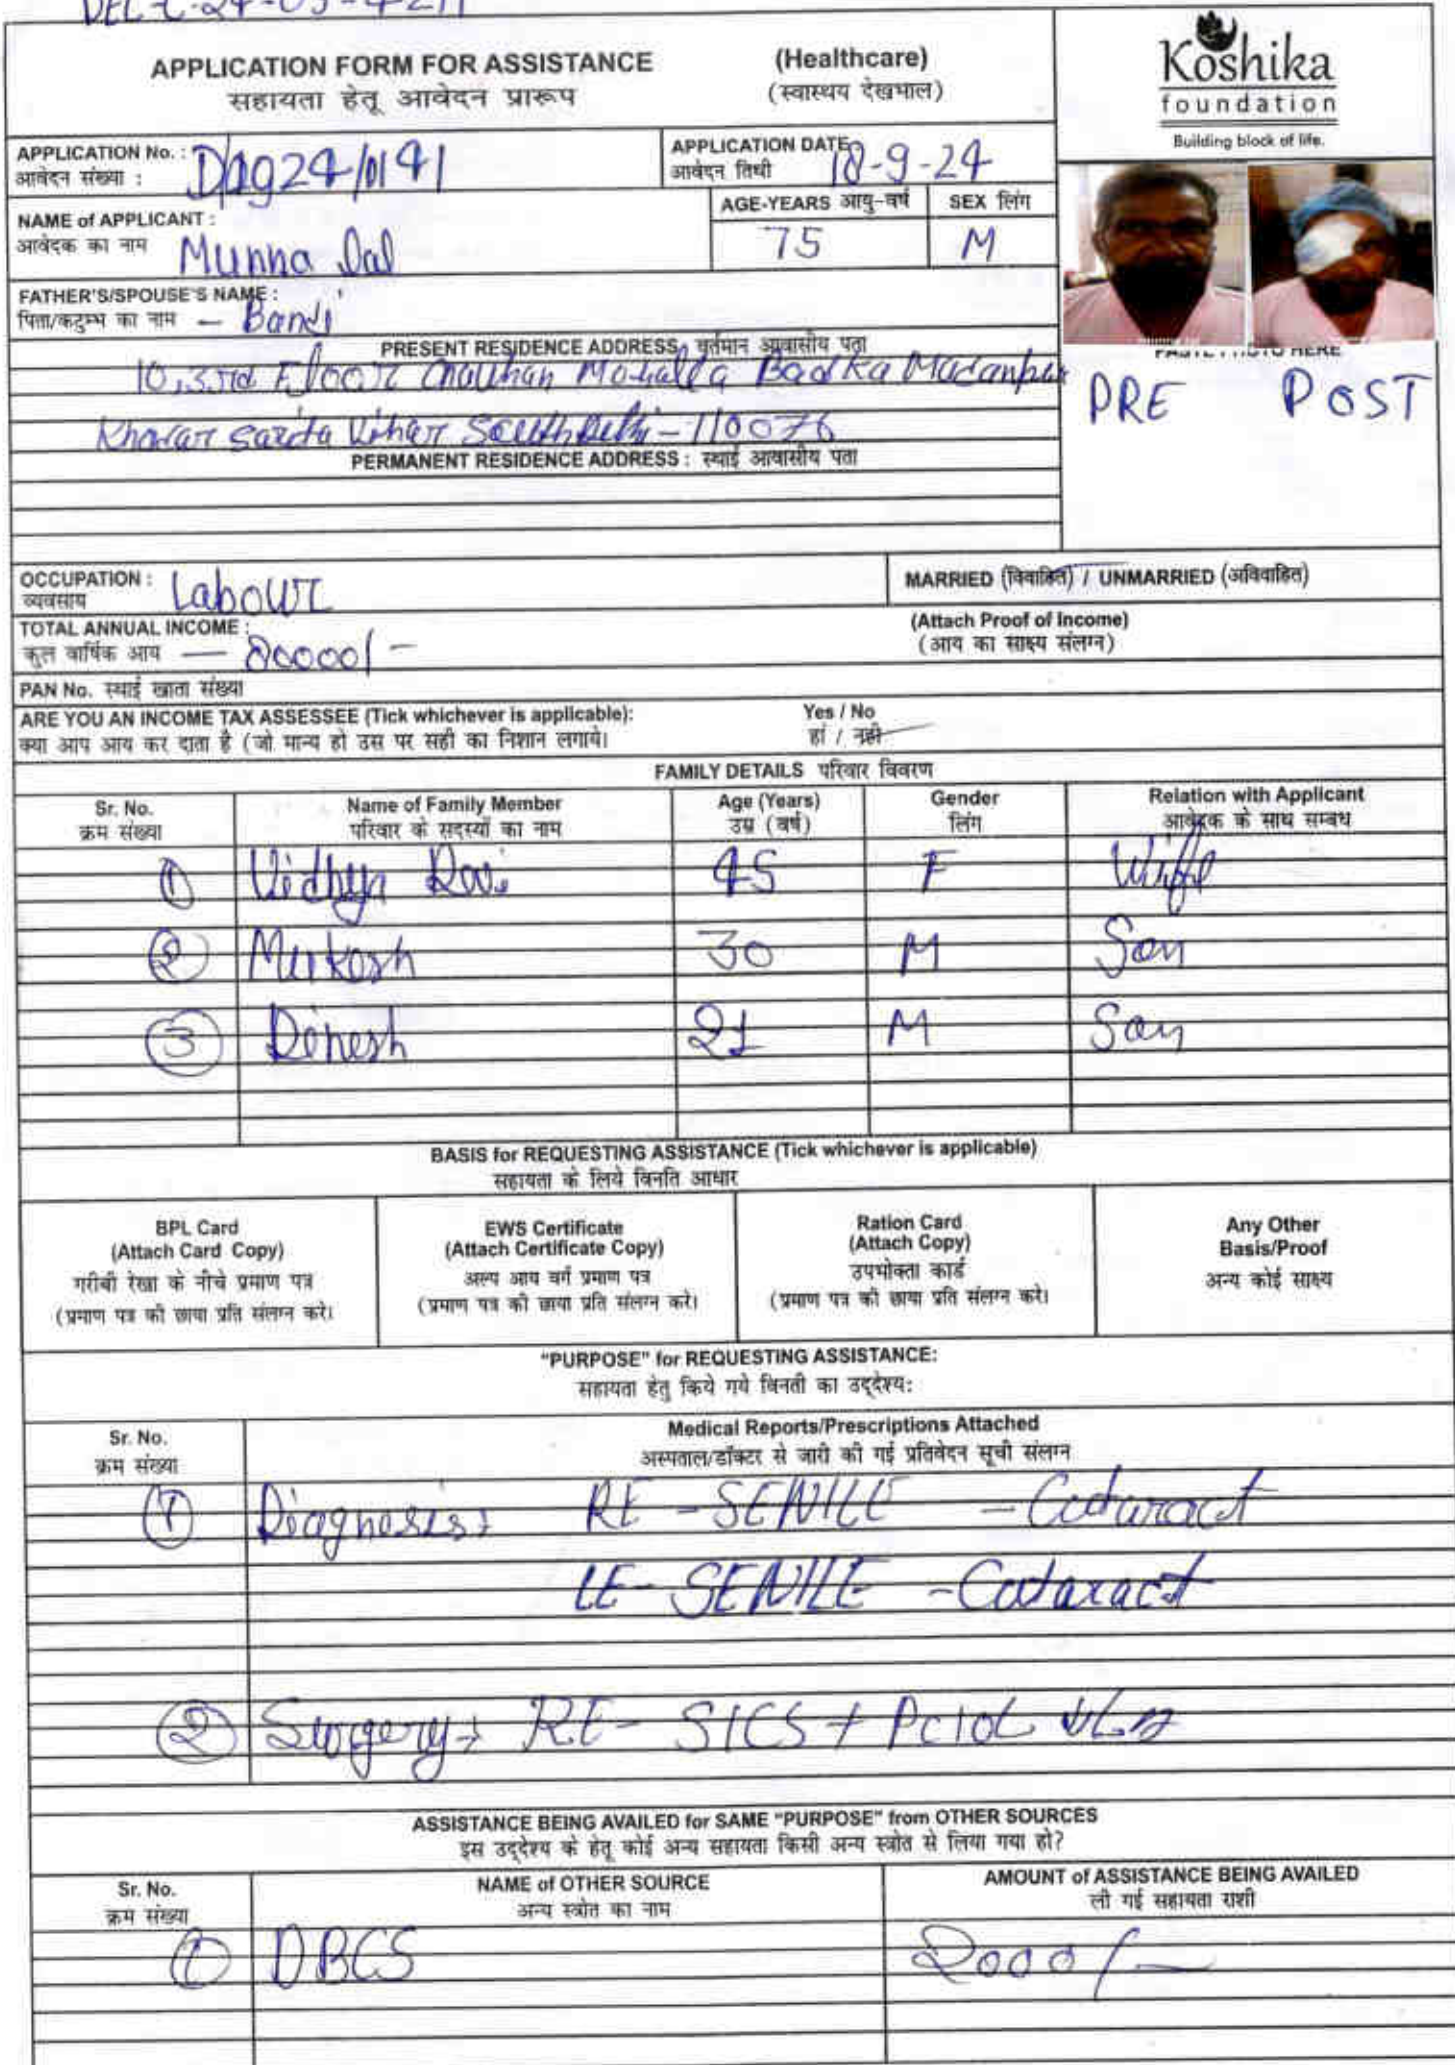 APPLICATION FORM FOR ASSISTANCE (Healthcare)
सहायता हेतू आवेदन प्रारूप (स्वास्थय देखभाल)
Koshika
foundation
Building block of life.
APPLICATION No. :
आवेदन संख्या :
APPLICATION DATE 18-9-24
आवेदन तिथी
NAME of APPLICANT :
आवेदक का नाम Munna Lal
AGE-YEARS आयु-वर्ष SEX लिंग
75 M
FATHER'S/SPOUSE'S NAME :
पिता/कटुम्भ का नाम — Bandi
PRESENT RESIDENCE ADDRESS वर्तमान आवासीय पता
10, 3rd Floor Chauhan Mohalla Madanpur
Khadar Sarita Vihar South Delhi - 110076
PERMANENT RESIDENCE ADDRESS : स्थाई आवासीय पता
PASTE PHOTO HERE
PRE POST
OCCUPATION :
व्यवसाय Labour
MARRIED (विवाहित) / UNMARRIED (अविवाहित)
TOTAL ANNUAL INCOME :
कुल वार्षिक आय —
(Attach Proof of Income)
(आय का साक्ष्य संलग्न)
PAN No. स्थाई खाता संख्या
ARE YOU AN INCOME TAX ASSESSEE (Tick whichever is applicable): Yes / No
क्या आप आय कर दाता है (जो मान्य हो उस पर सही का निशान लगाये। हां / नही
FAMILY DETAILS परिवार विवरण
Sr. No. Name of Family Member Age (Years) Gender Relation with Applicant
क्रम संख्या परिवार के सदस्यों का नाम उम्र (वर्ष) लिंग आवेदक के साथ सम्बध
① Vidhya 45 F Wife
② Mukesh 30 M Son
③ Dinesh 21 M Son
BASIS for REQUESTING ASSISTANCE (Tick whichever is applicable)
सहायता के लिये विनति आधार
BPL Card
(Attach Card Copy)
गरीबी रेखा के नीचे प्रमाण पत्र
(प्रमाण पत्र की छाया प्रति संलग्न करे।
EWS Certificate
(Attach Certificate Copy)
अल्प आय वर्ग प्रमाण पत्र
(प्रमाण पत्र की छाया प्रति संलग्न करे।
Ration Card
(Attach Copy)
उपभोक्ता कार्ड
(प्रमाण पत्र की छाया प्रति संलग्न करे।
Any Other
Basis/Proof
अन्य कोई साक्ष्य
"PURPOSE" for REQUESTING ASSISTANCE:
सहायता हेतु किये गये विनती का उद्देश्य:
Sr. No. Medical Reports/Prescriptions Attached
क्रम संख्या अस्पताल/डॉक्टर से जारी की गई प्रतिवेदन सूची संलग्न
① Diagnosis: RE - SENILE - Cataract
LE - SENILE - Cataract
② Surgery: RE - SICS + PCIOL
ASSISTANCE BEING AVAILED for SAME "PURPOSE" from OTHER SOURCES
इस उद्देश्य के हेतू कोई अन्य सहायता किसी अन्य स्त्रोत से लिया गया हो?
Sr. No. NAME of OTHER SOURCE AMOUNT of ASSISTANCE BEING AVAILED
क्रम संख्या अन्य स्त्रोत का नाम ली गई सहायता राशी
① DBCS 2000/-